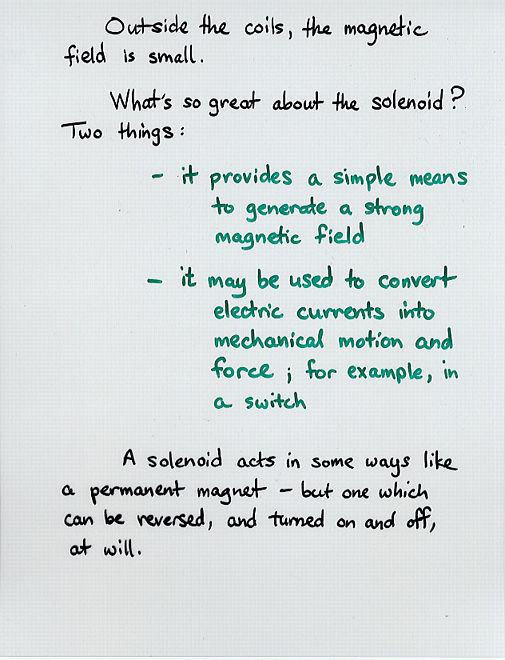 Outside the coils, the magnetic
field is small.
What's so great about the solenoid?
Two things:
- it provides a simple means
to generate a strong
magnetic field
- it may be used to convert
electric currents into
mechanical motion and
force; for example, in
a switch
A solenoid acts in some ways like
a permanent magnet - but one which
can be reversed, and turned on and off,
at will.